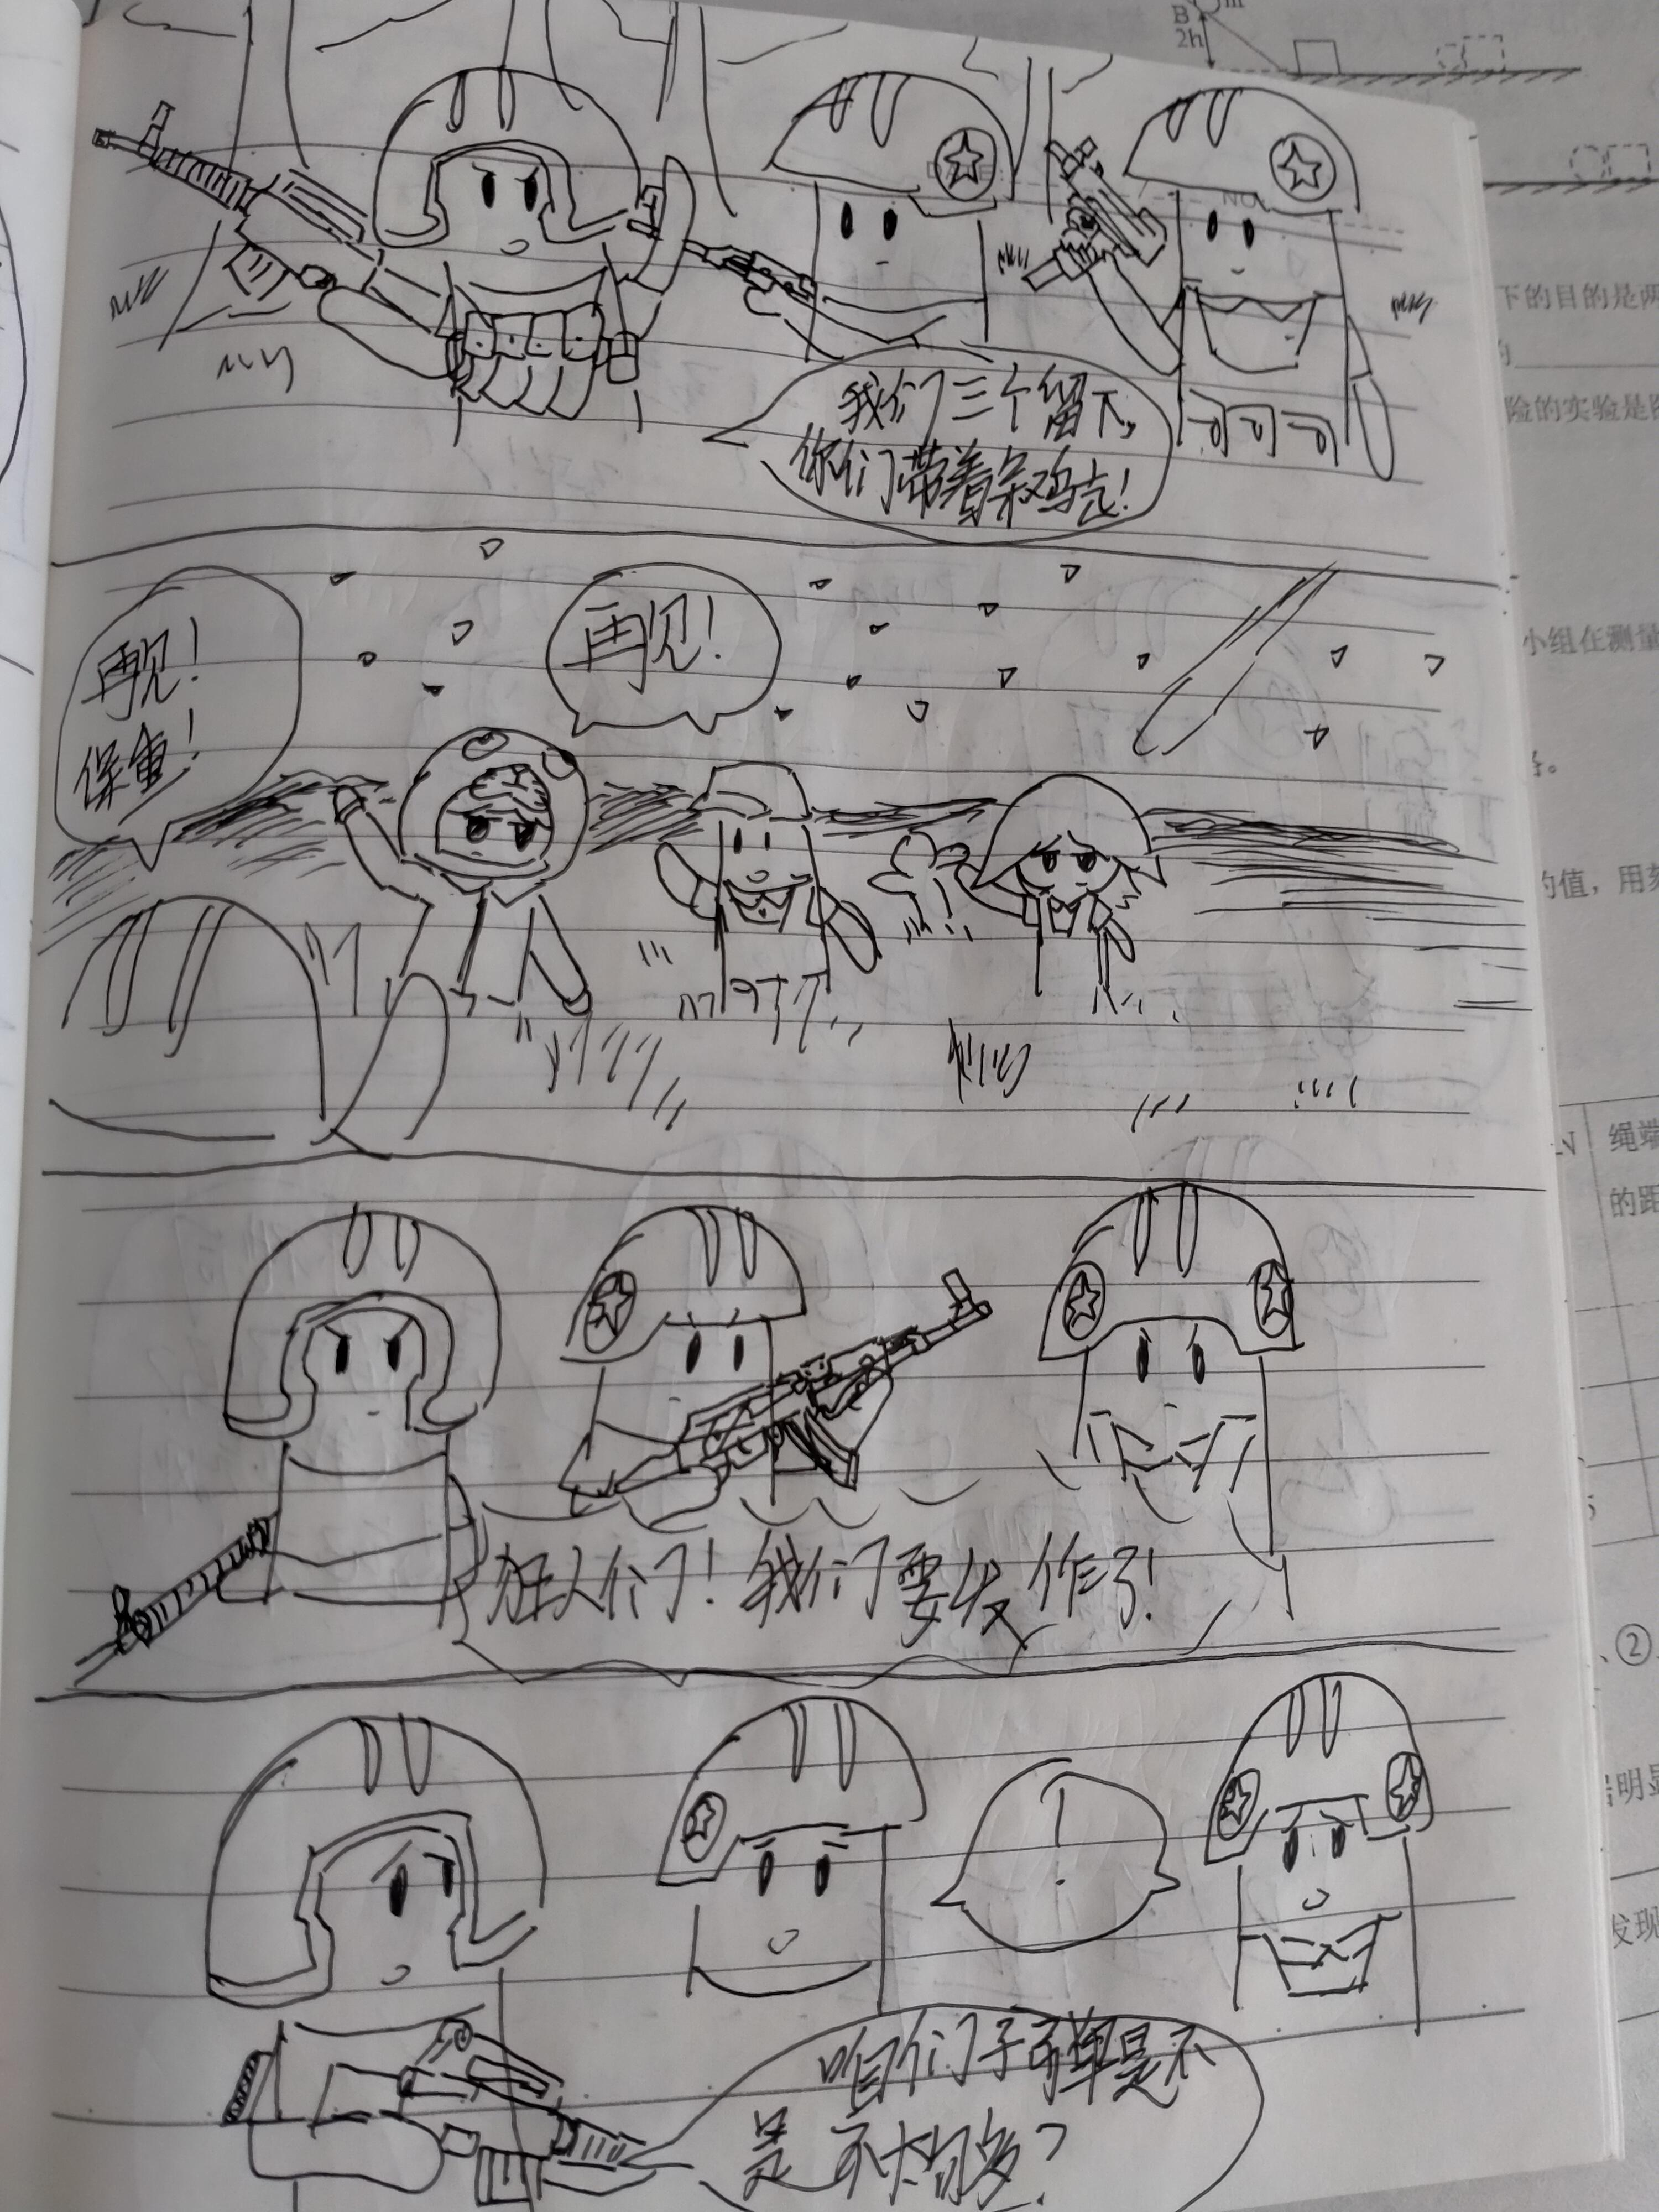 我们三个留下,
你们带着条鸡走!
再见!
保重!
再见!
狂人们!我们要发作了!
!
咱们子弹是不
是不太够?
B
m
2h
下的目的是
险的实验是
小组在测量
的值，用
N
绳端
的距
②
发现